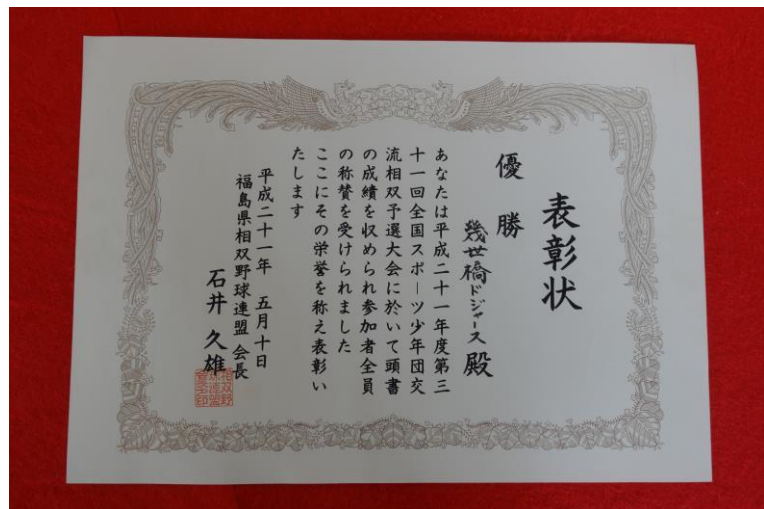 表彰状
優勝
幾世橋ドジャース殿
あなたは平成二十一年度第三
十一回全国スポーツ少年団交
流相双予選大会に於いて頭書
の成績を収められ参加者全員
の称賛を受けられました
ここにその栄挙を称え表彰い
たします
平成二十一年 五月十日
福島県相双野球連盟 会長
石井久雄